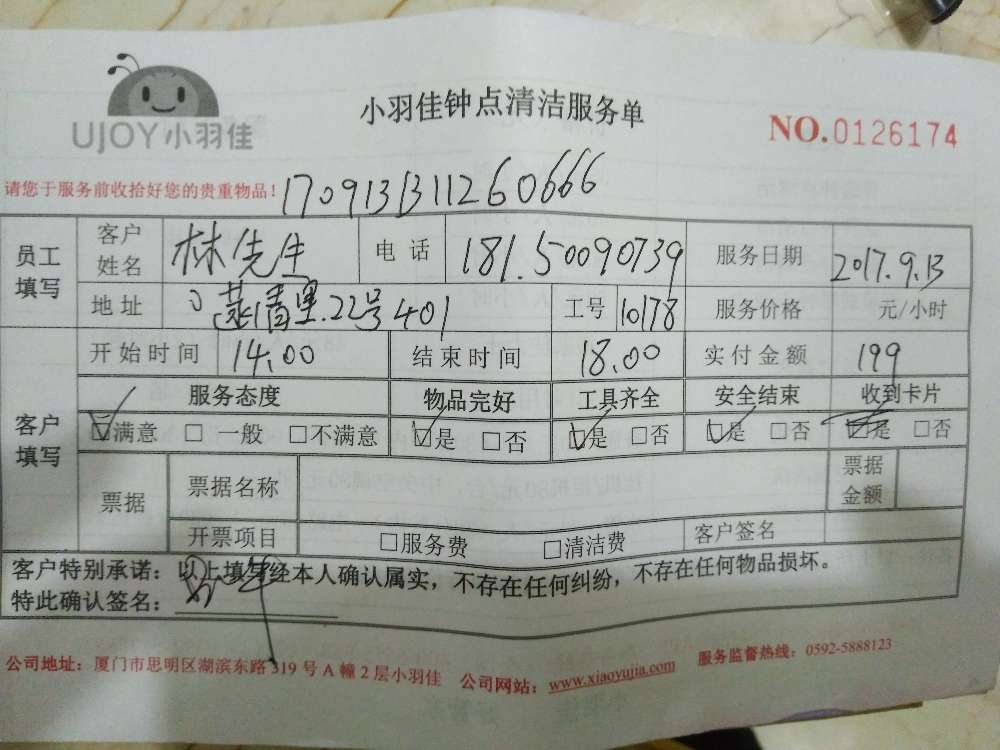 UJOY小羽佳
小羽佳钟点清洁服务单
NO.0126174
请您于服务前收拾好您的贵重物品！1709131311260666
员工填写 客户姓名 林先生 电话 181.50090739 服务日期 2017.9.13
地址 清里.22号401 工号 10178 服务价格 元/小时
客户填写 开始时间 14.00 结束时间 18.00 实付金额 199
服务态度 物品完好 工具齐全 安全结束 收到卡片
☑满意 □一般 □不满意 ☑是 □否 ☑是 □否 ☑是 □否 ☑是 □否
票据 票据名称 票据金额
开票项目 □服务费 □清洁费 客户签名
客户特别承诺：以上填写经本人确认属实，不存在任何纠纷，不存在任何物品损坏。
特此确认签名：
公司地址：厦门市思明区湖滨东路319号A幢2层小羽佳 公司网站：www.xiaoyujia.com 服务监督热线：0592-5888123